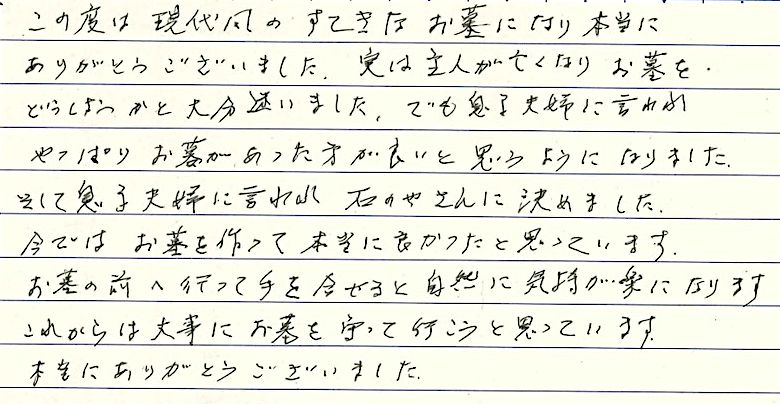 この度は現代風のすてきなお墓になり本当に
ありがとうございました。実は主人が亡くなりお墓を
どうしようかと大分迷いました。でも息子夫婦に言われ
やっぱりお墓があった方が良いと思うようになりました。
そして息子夫婦に言われ石のやさんに決めました。
今ではお墓を作って本当に良かったと思っています。
お墓の前へ行って手を合せると自然に気持が楽になります
これからは大事にお墓を守って行こうと思っています。
本当にありがとうございました。